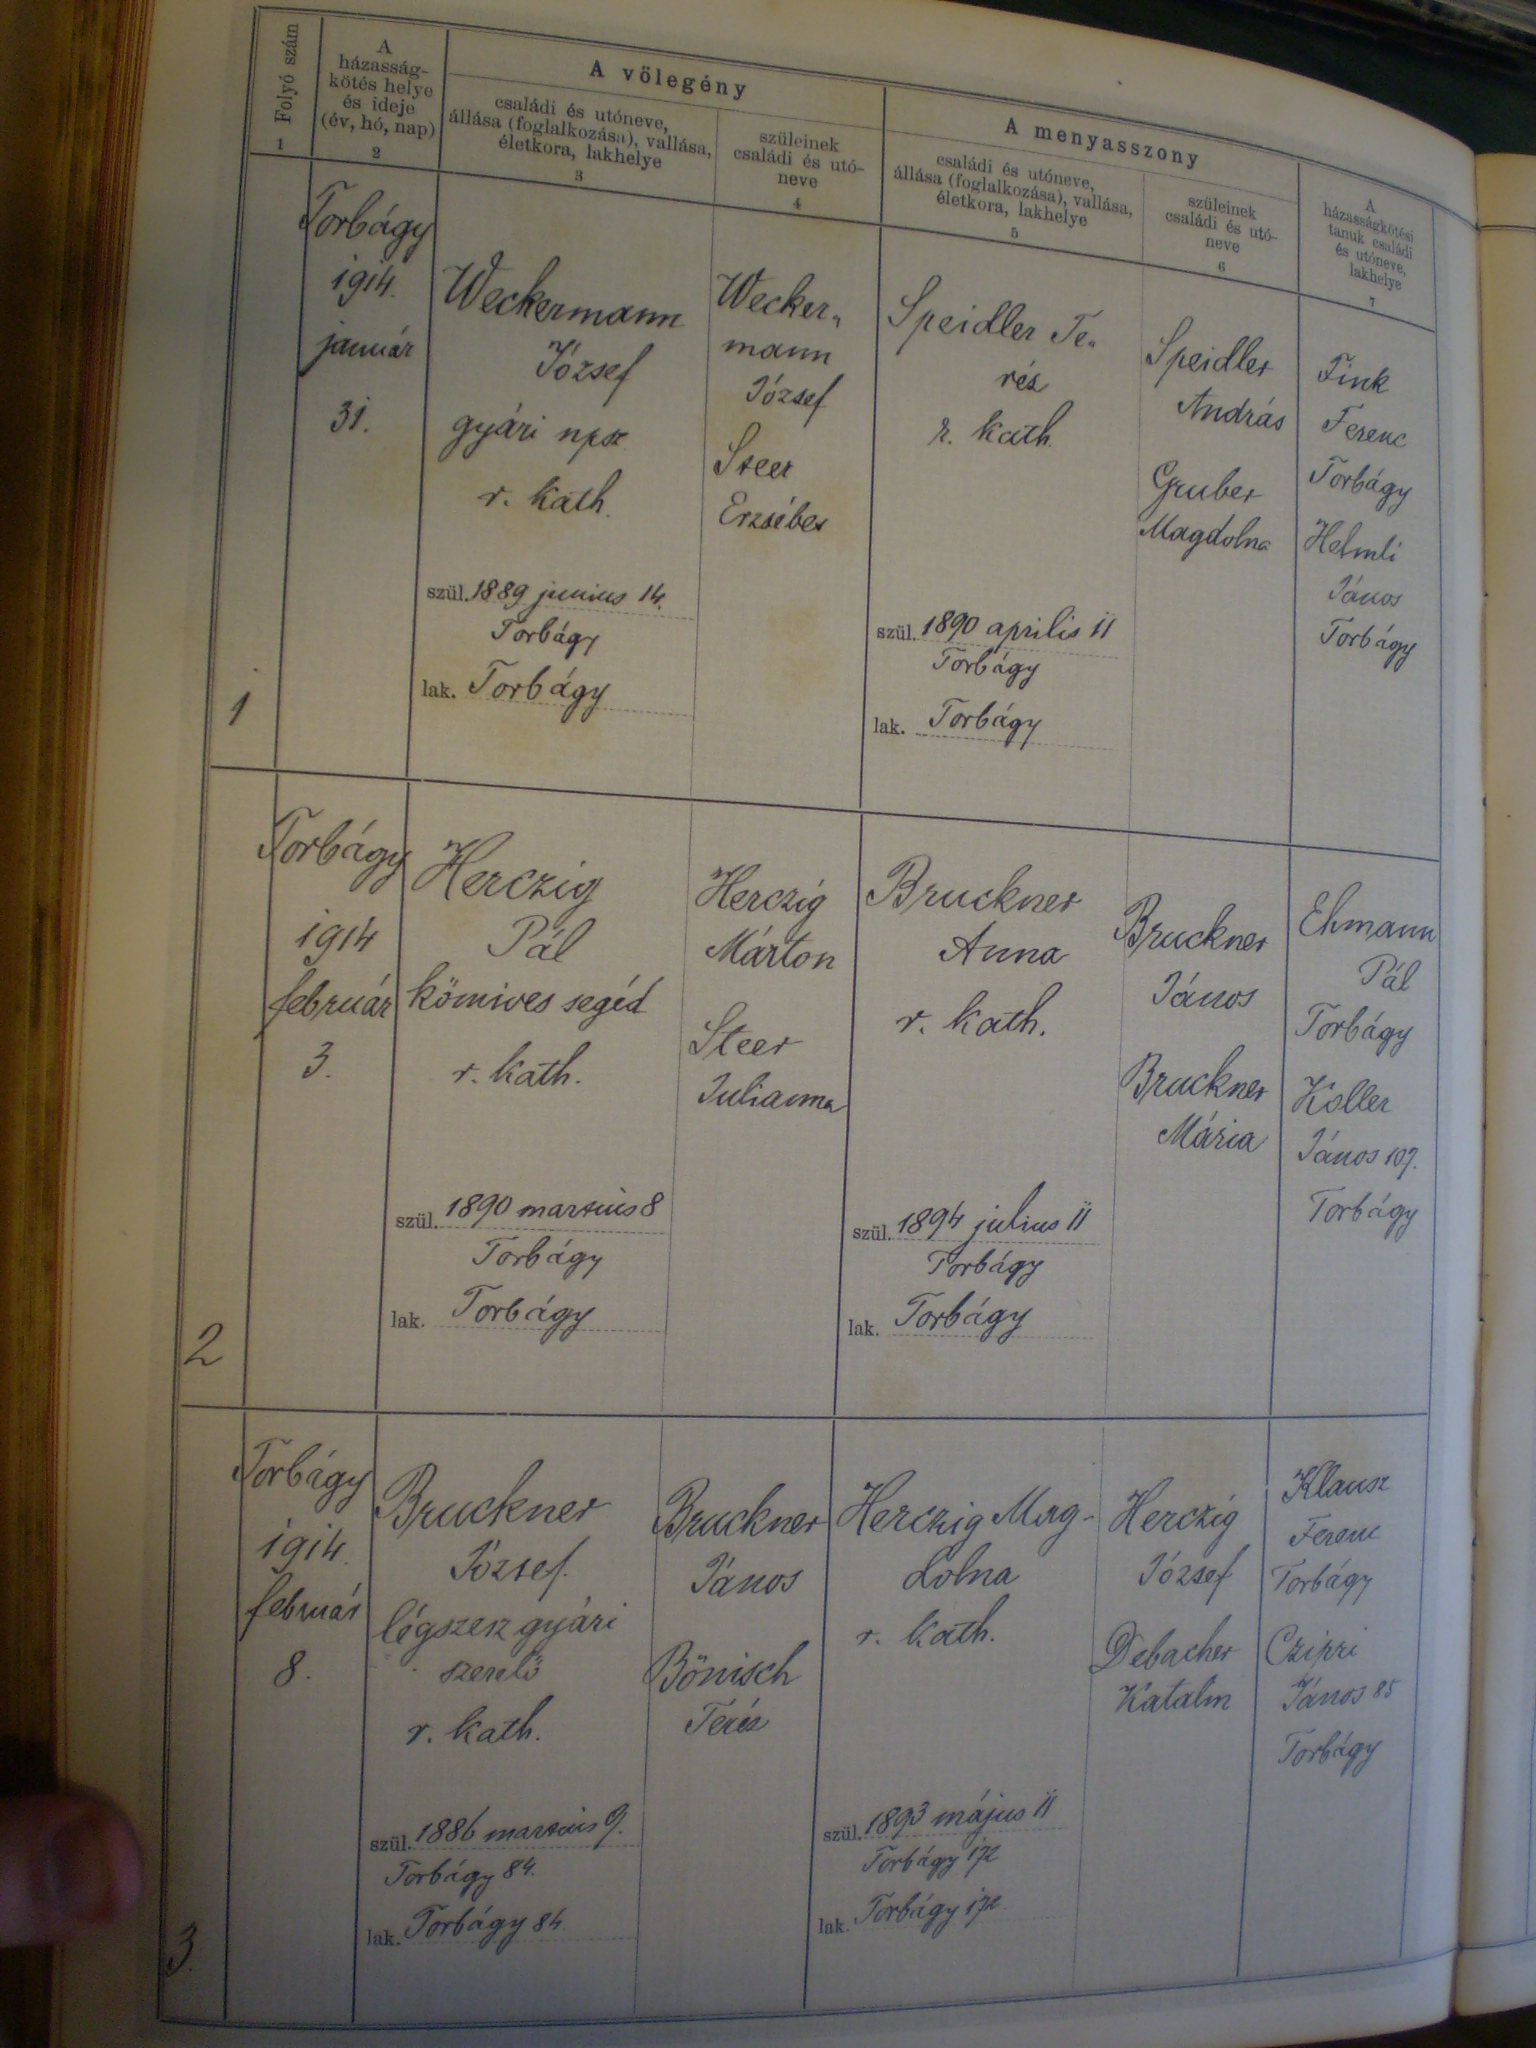 Folyó szám
1
A
házasság-
kötés helye
és ideje
(év, hó, nap)
2
A vőlegény
családi és utóneve,
állása (foglalkozása), vallása,
életkora, lakhelye
3
szüleinek
családi és utó-
neve
4
A menyasszony
családi és utóneve,
állása (foglalkozása), vallása,
életkora, lakhelye
5
szüleinek
családi és utó-
neve
6
A
házasságkötési
tanuk családi
és utóneve,
lakhelye
7
1
Torbágy
1914.
január
31.
Weckermann
József
gyári npsz
r. kath.
szül. 1889 junius 14.
Torbágy
lak. Torbágy
Wecker„
mann
József
Steer
Erzsébet
Speidler Te„
réz
r. kath.
szül. 1890 aprilis 11
Torbágy
lak. Torbágy
Speidler
András
Gruber
Magdolna
Fink
Ferenc
Torbágy
Helmli
János
Torbágy
2
Torbágy
1914
február
3.
Herczig
Pál
kömives segéd
r. kath.
szül. 1890 martius 8
Torbágy
lak. Torbágy
Herczig
Márton
Steer
Julianna
Bruckner
Anna
r. kath.
szül. 1894 julius 11
Torbágy
lak. Torbágy
Bruckner
János
Bruckner
Mária
Ehmann
Pál
Torbágy
Koller
János 107.
Torbágy
3.
Torbágy
1914.
február
8.
Bruckner
József.
légszesz gyári
szerelő
r. kath.
szül. 1886 martius 9.
Torbágy 84.
lak. Torbágy 84
Bruckner
János
Bönisch
Teréz
Herczig Mag-
dolna
r. kath.
szül. 1893 május 11
Torbágy 172
lak. Torbágy 172.
Herczig
József
Debacher
Katalin
Klausz
Ferenc
Torbágy
Czipri
János 85
Torbágy